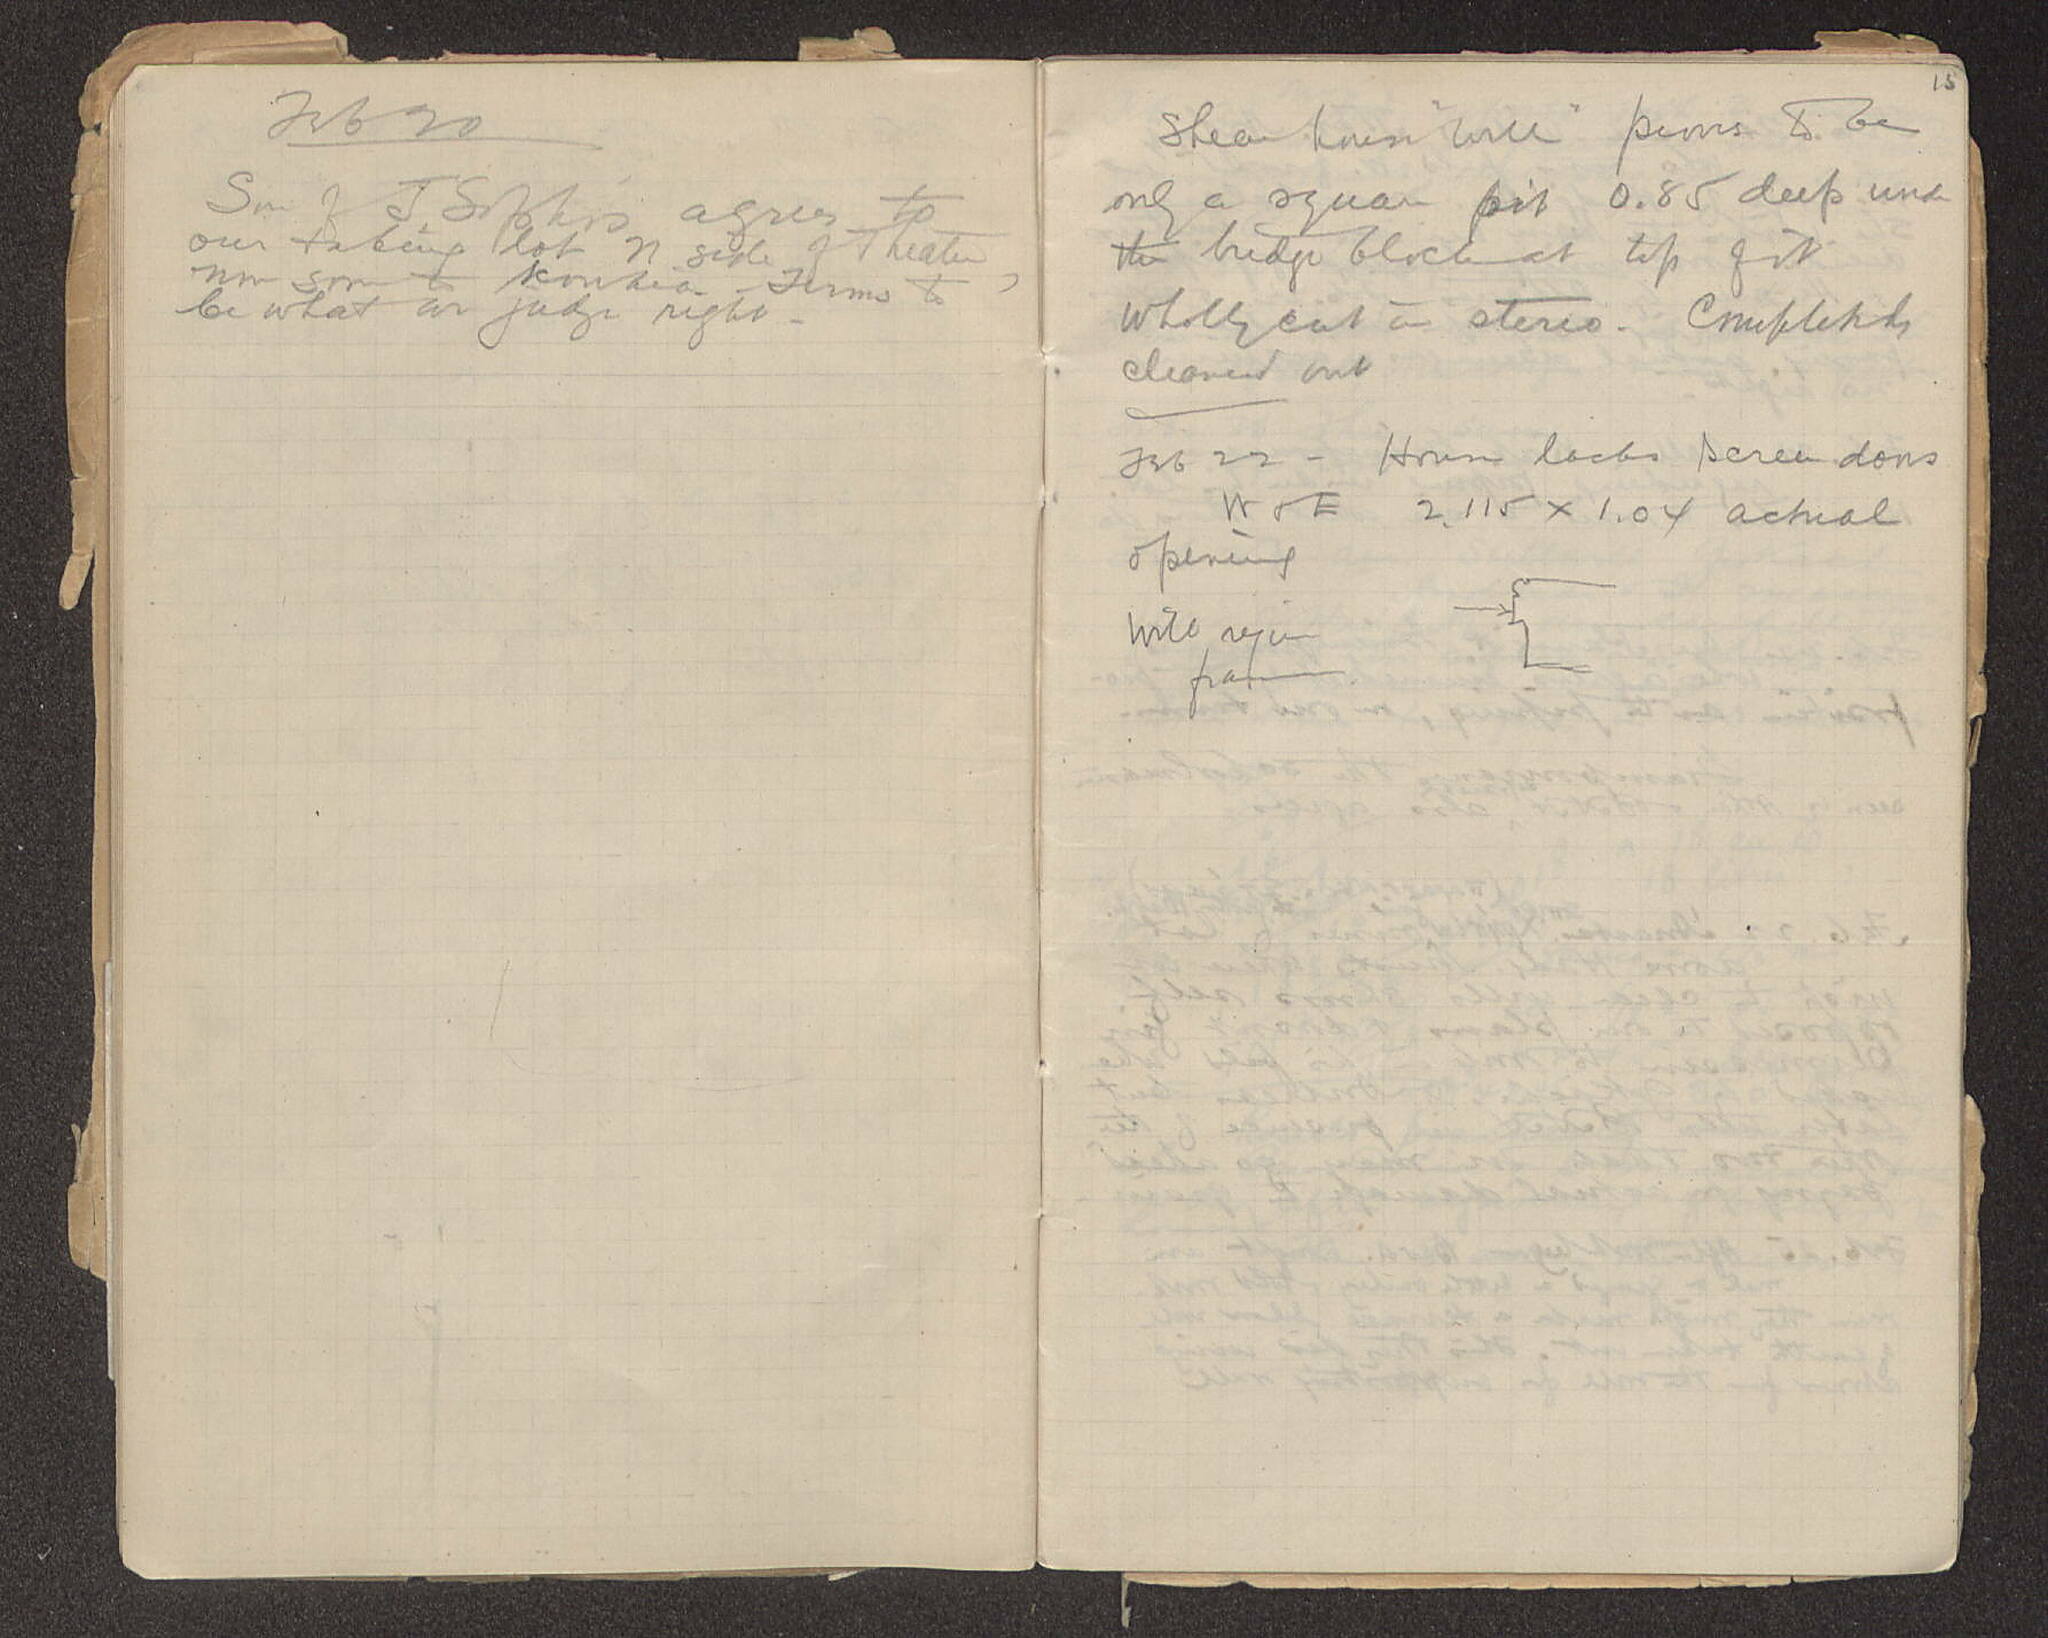 Feb 20
Son of J. agrees to
our taking lot N side of Theater,
now sown to Terms to
be what we judge right -
15
"well" proves to be
only a square pit 0.85 deep under
the bridge block at top of it
wholly cut in stereo. Completely
cleaned out
Feb 22 - House lacks screen doors
W & E 2.115 x 1.04 actual
opening
Will require
frame